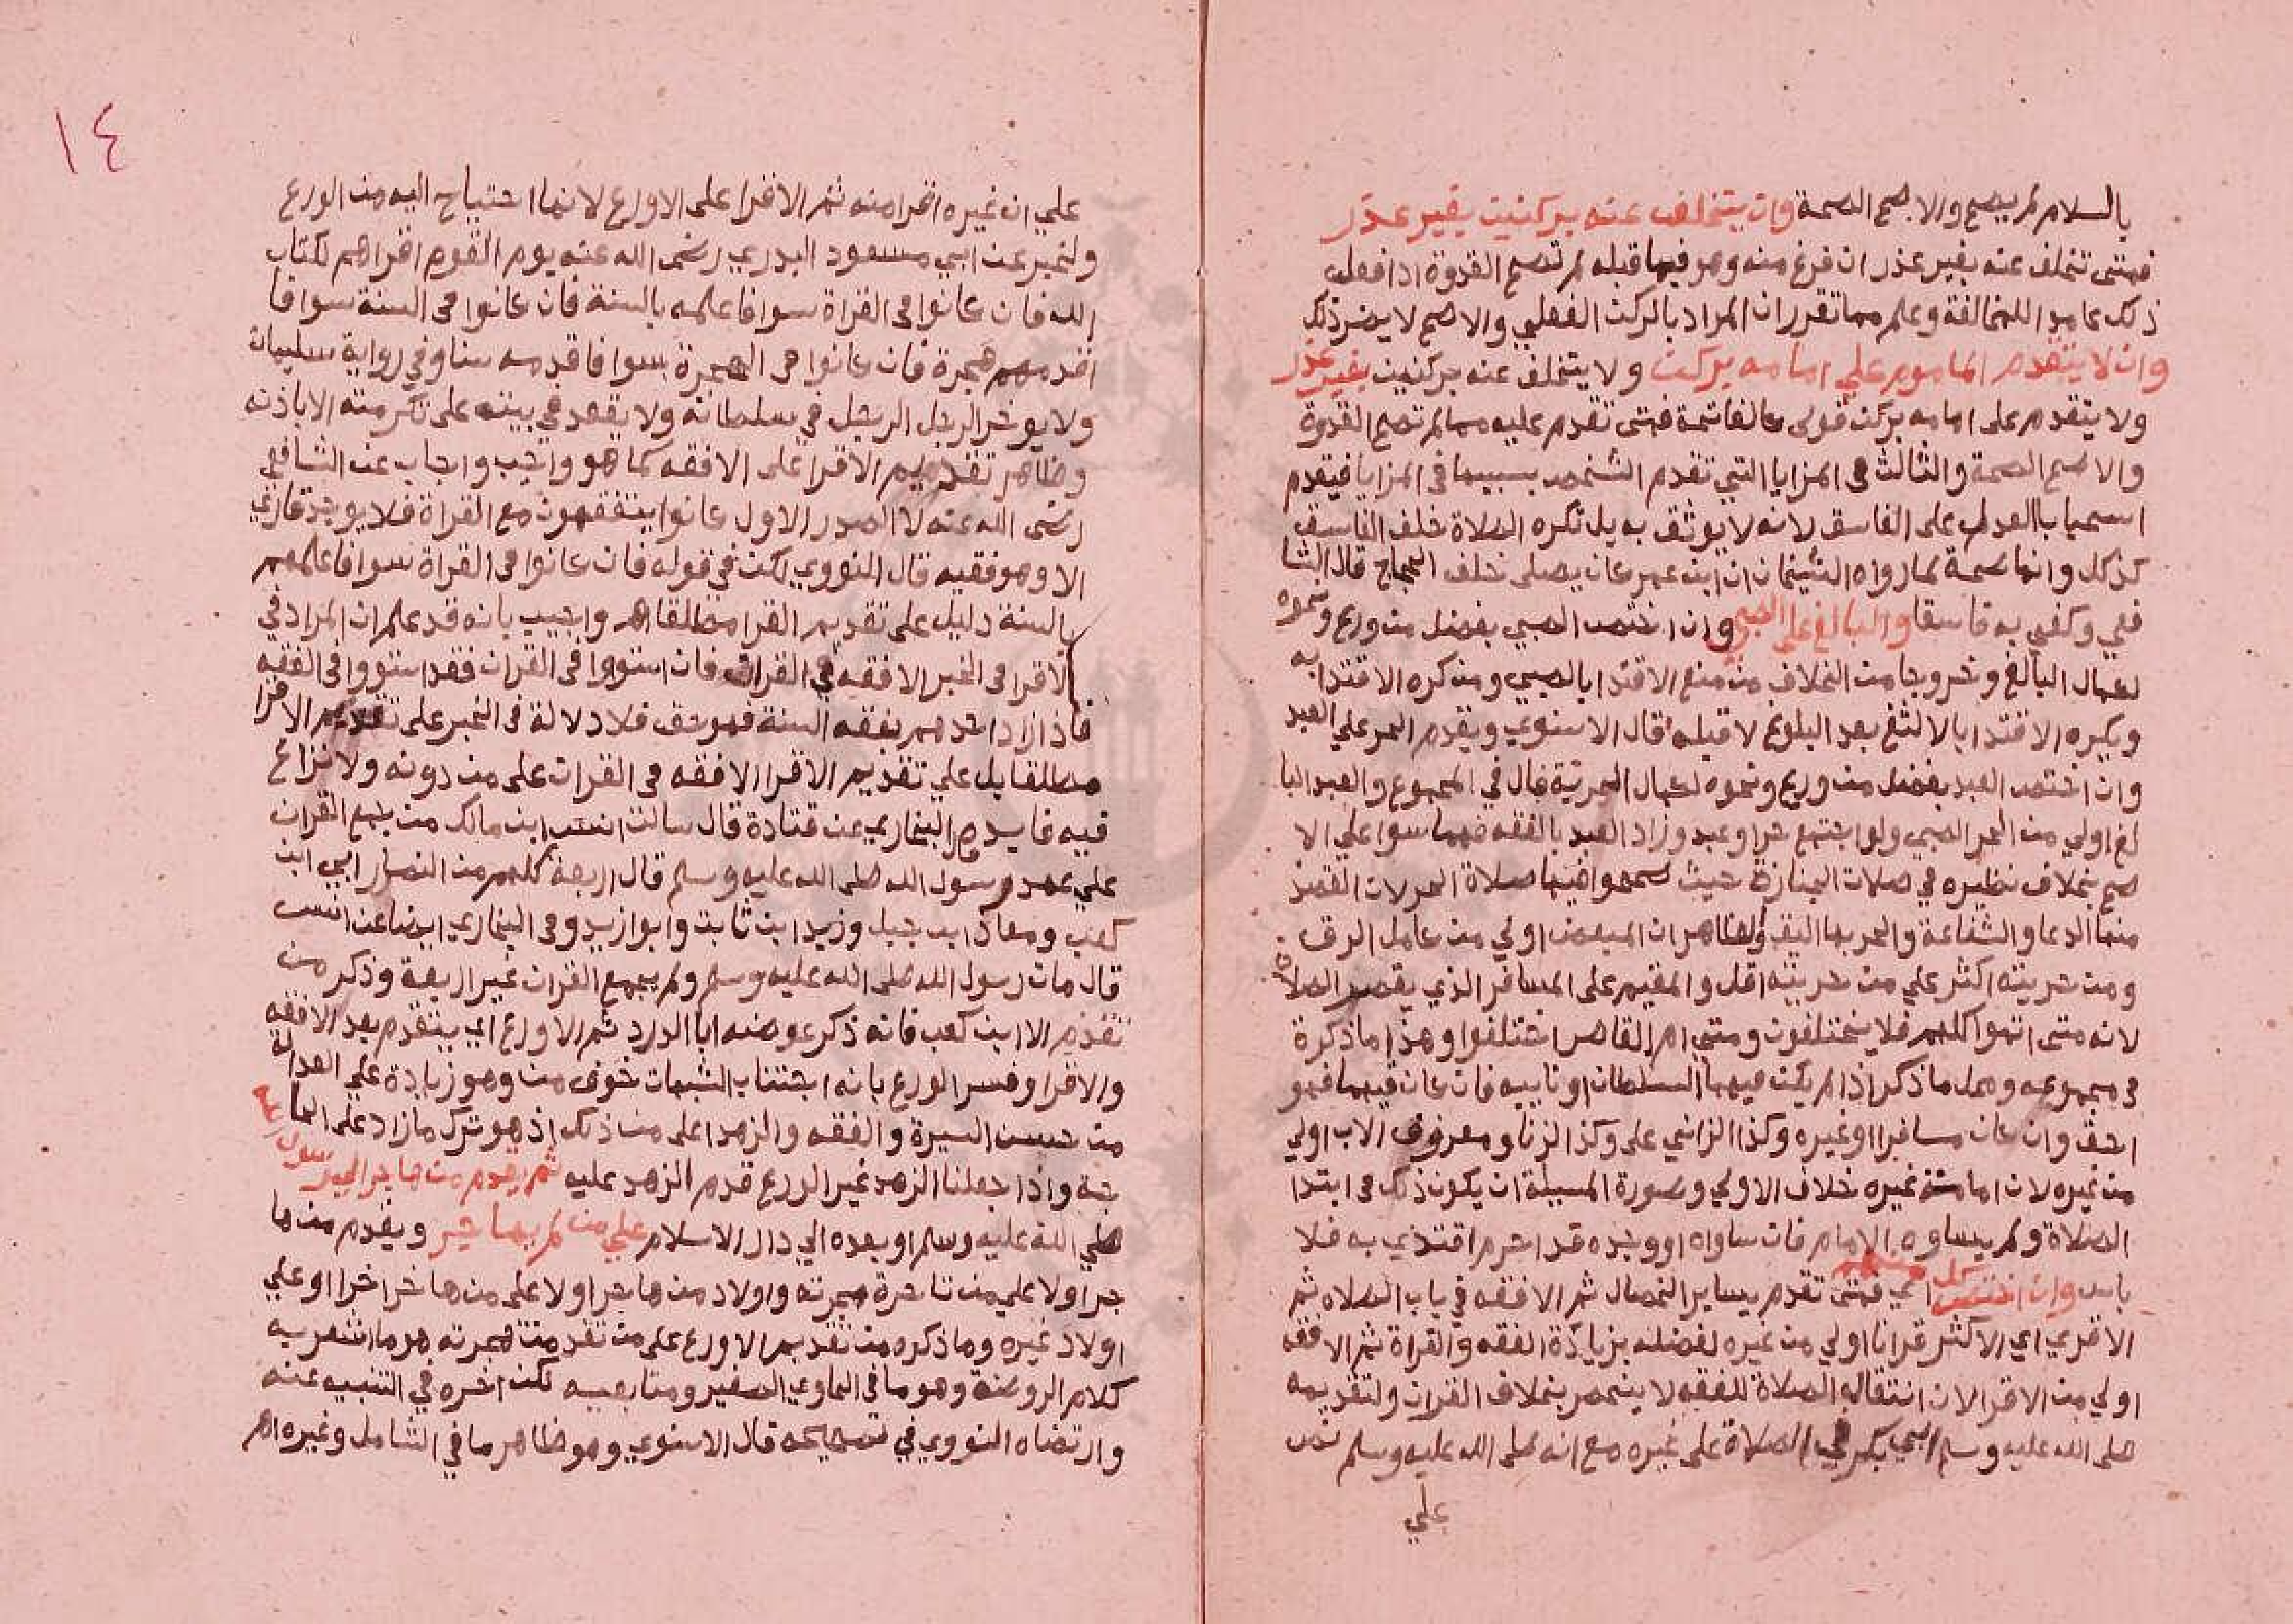 بالسلام لم يصح والاصح الصحة وان يتخلف عنه بركنين بغير عذر
فمتى تخلف عنه بغير عذر ان فرغ منه وهو فيما قبله لم تصح القدوة اذا فعل
ذلك عامدا للمخالفة وعلم مما تقرر ان المراد بالركن الفعلي والاصح لا يضر ذلك
وان لا يتقدم الماموم علي امامه بركن ولا يتخلف عنه بركنين بغير عذر
ولا يتقدم على امامه بركن قولى كالفاتحة فمتى تقدم عليه مما لم تصح القدوة
والاصح الصحة والثالث في المزايا التي تقدم الشخص بسببها في المزايا فيقدم
استحبابا العدل على الفاسق لانه لا يوثق به بل تكره الصلاة خلف الفاسق
كذلك وانما صحة لما رواه الشيخان ان ابن عمر كان يصلى خلف الحجاج قال الشا
فعي وكفي به فاسقا والبالغ على الصبي وان اختص الصبي بفضل من ورع ونحوه
لكمال البالغ وخروجا من الخلاف من منع الاقتدا بالصبي ومن كره الاقتدا به
ويكره الاقتدا بالالثغ بعد البلوغ لا قبله قال الاسنوي ويقدم الحر علي العبد
وان اختص العبد بفضل من ورع ونحوه لكمال الحرية قال في المجموع والعبد البا
لغ اولي من الحر الصبي ولو اجتمع حرا وعبد وزاد العبد بالفقه فهما سوا علي الا
صح بخلاف نظيره في صلات الجنازة حيث صححوا فيها صلاة الحر لان القصد
منها الدعا والشفاعة والحر بها اليق والظاهر ان المبعض اولي من كامل الرق
ومن حريته اكثر علي من حريته اقل والمقيم على المسافر الذي يقصر الصلاة
لانه متى اتموا كلهم فلا يختلفون ومتى ام القاصر اختلفوا وهذا ما ذكرة
في مجموعه ومحل ما ذكر اذا لم يكن فيهما السلطان او نايبه فان كان فيهما فهو
احق وان كان مسافرا او غيره وكذا الزاني على وكذا الزنا ومعروف الاب اولي
من غيره لان امامته غيره خلاف الاولي وصورة المسيلة ان يكون ذلك في ابتدا
الصلاة ولم يساوه الامام فان ساواه او وجده قد احرم اقتدي به فلا
باس وان اختص كل منهم اي فمتى تقدم بساير الخصال ثم الافقه في باب الصلاه ثم
الاقري اي الاكثر قرانا اولي من غيره لفضله بزيادة الفقه والقراة ثم الافقه
اولي من الاقرا لان انتقاله الصلاة للفقه لا ينحصر بخلاف القران ولتقديمه
صلى الله عليه وسلم ابي بكر في الصلاة على غيره مع انه صلى الله عليه وسلم نص
علي
١٤
علي ان غيره اقرا منه ثم الاقرا على الاورع لانما احتياج اليه من الورع
ولخبر عن ابي مسعود البدري رضى الله عنه يوم القوم اقراهم لكتاب
الله فان كانوا في القراة سوا فاعلمه بالسنة فان كانوا في السنة سوا فا
اقدمهم هجرة فان كانوا في الهجرة سوا فاقدمه سنا وفي رواية سليمان
ولا يوخر الرجل الرجل في سلطانه ولا يقعد في بيته على تكرمته الا باذنه
وظاهر تقديم الاقرا على الافقه كما هو واجيب واجاب عن الشافعي
رضى الله عنه لا الصدر الاول كانوا يتفقهون مع القراة فلا يوجد قاري
الا وهو فقيه قال النووي لكن في قوله فان كانوا في القراة سوا فاعلمهم
بالسنة دليل على تقديم القرا مطلقا اهر واجيب بانه قد علم ان المراد في
الاقرا في الخبر الافقه في القران فان استووا في القران فقد استووا في الفقه
فاذا زاد احدهم بفقه السنة فهو حق فلا دلالة في الخبر على تقديم الاقرا
مطلقا بل علي تقديم الاقرا الافقه في القران على من دونه ولا نزاع
فيه فايدة البخاري عن قتادة قال سالت انس ابن مالك من جمع القران
علي عهد رسول الله صلى الله عليه وسلم قال اربعة كلهم من النصار ابي ابن
كعب ومعاذ ابن جبل وزيد ابن ثابت وابوا زيد وفي البخاري ايضا عن انس
قال مات رسول الله صلى الله عليه وسلم ولم يجمع القران غير اربعة وذكر من
تقدم الا ابن كعب فانه ذكر عوضه ابا الدرد ثم الاورع اي يتقدم بعد الافقه
والاقرا وفسر الورع بانه اجتناب الشبهات خوفى من وهو زيادة على العدالة
من حسن السيرة والفقه والزهد اعلى من ذلك اذ هو ترك ما زاد على الحا
جة واذا جعلنا الزهد غير الورع قدم الزهد عليه ثم يقدم من هاجر الى رسول
صلي الله عليه وسلم او بعده الي دار الاسلام علي من لم يهاجر ويقدم من ها
جر اولا علي من تاخرة هجرته واولاد من هاجر اولا على من هاخر اخرا او علي
اولاد غيره وما ذكره من تقديم الاورع على من تقدمت هجرته هو ما اشعر به
كلام الروضة وهو ما في الحاوي الصغير ومتابعيه لكن اخره في التنبيه عنه
وارتضاه النووي في تصحيحه قال الاسنوي وهو ظاهر ما في الشامل وغيره اهر